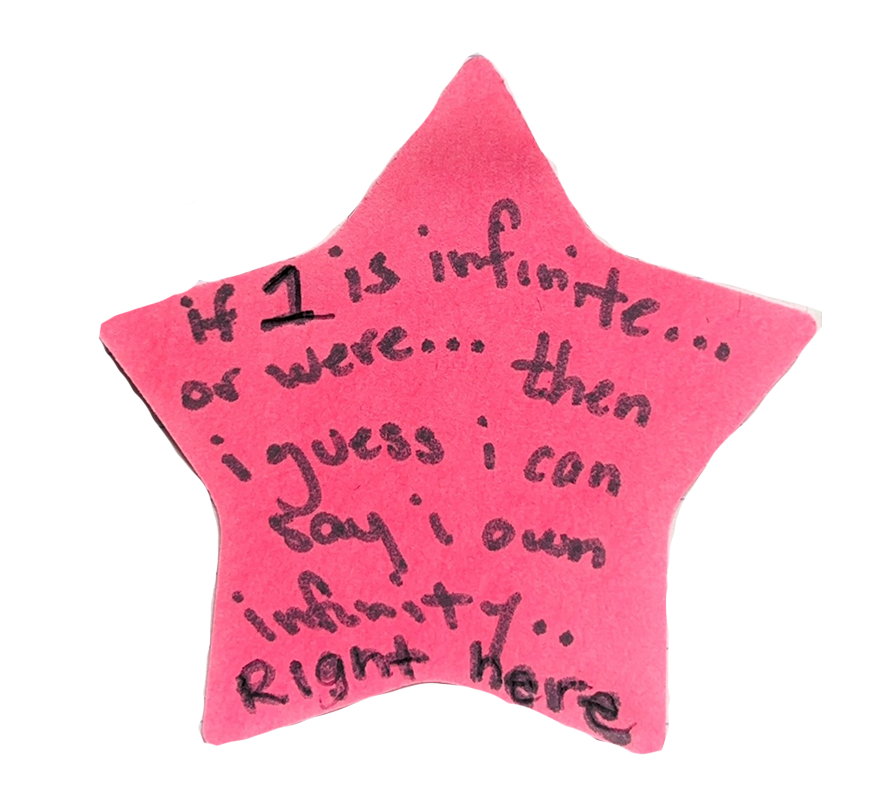 if 1 is infinite...
or were... then
i guess i can
say i own
infinity..
Right here